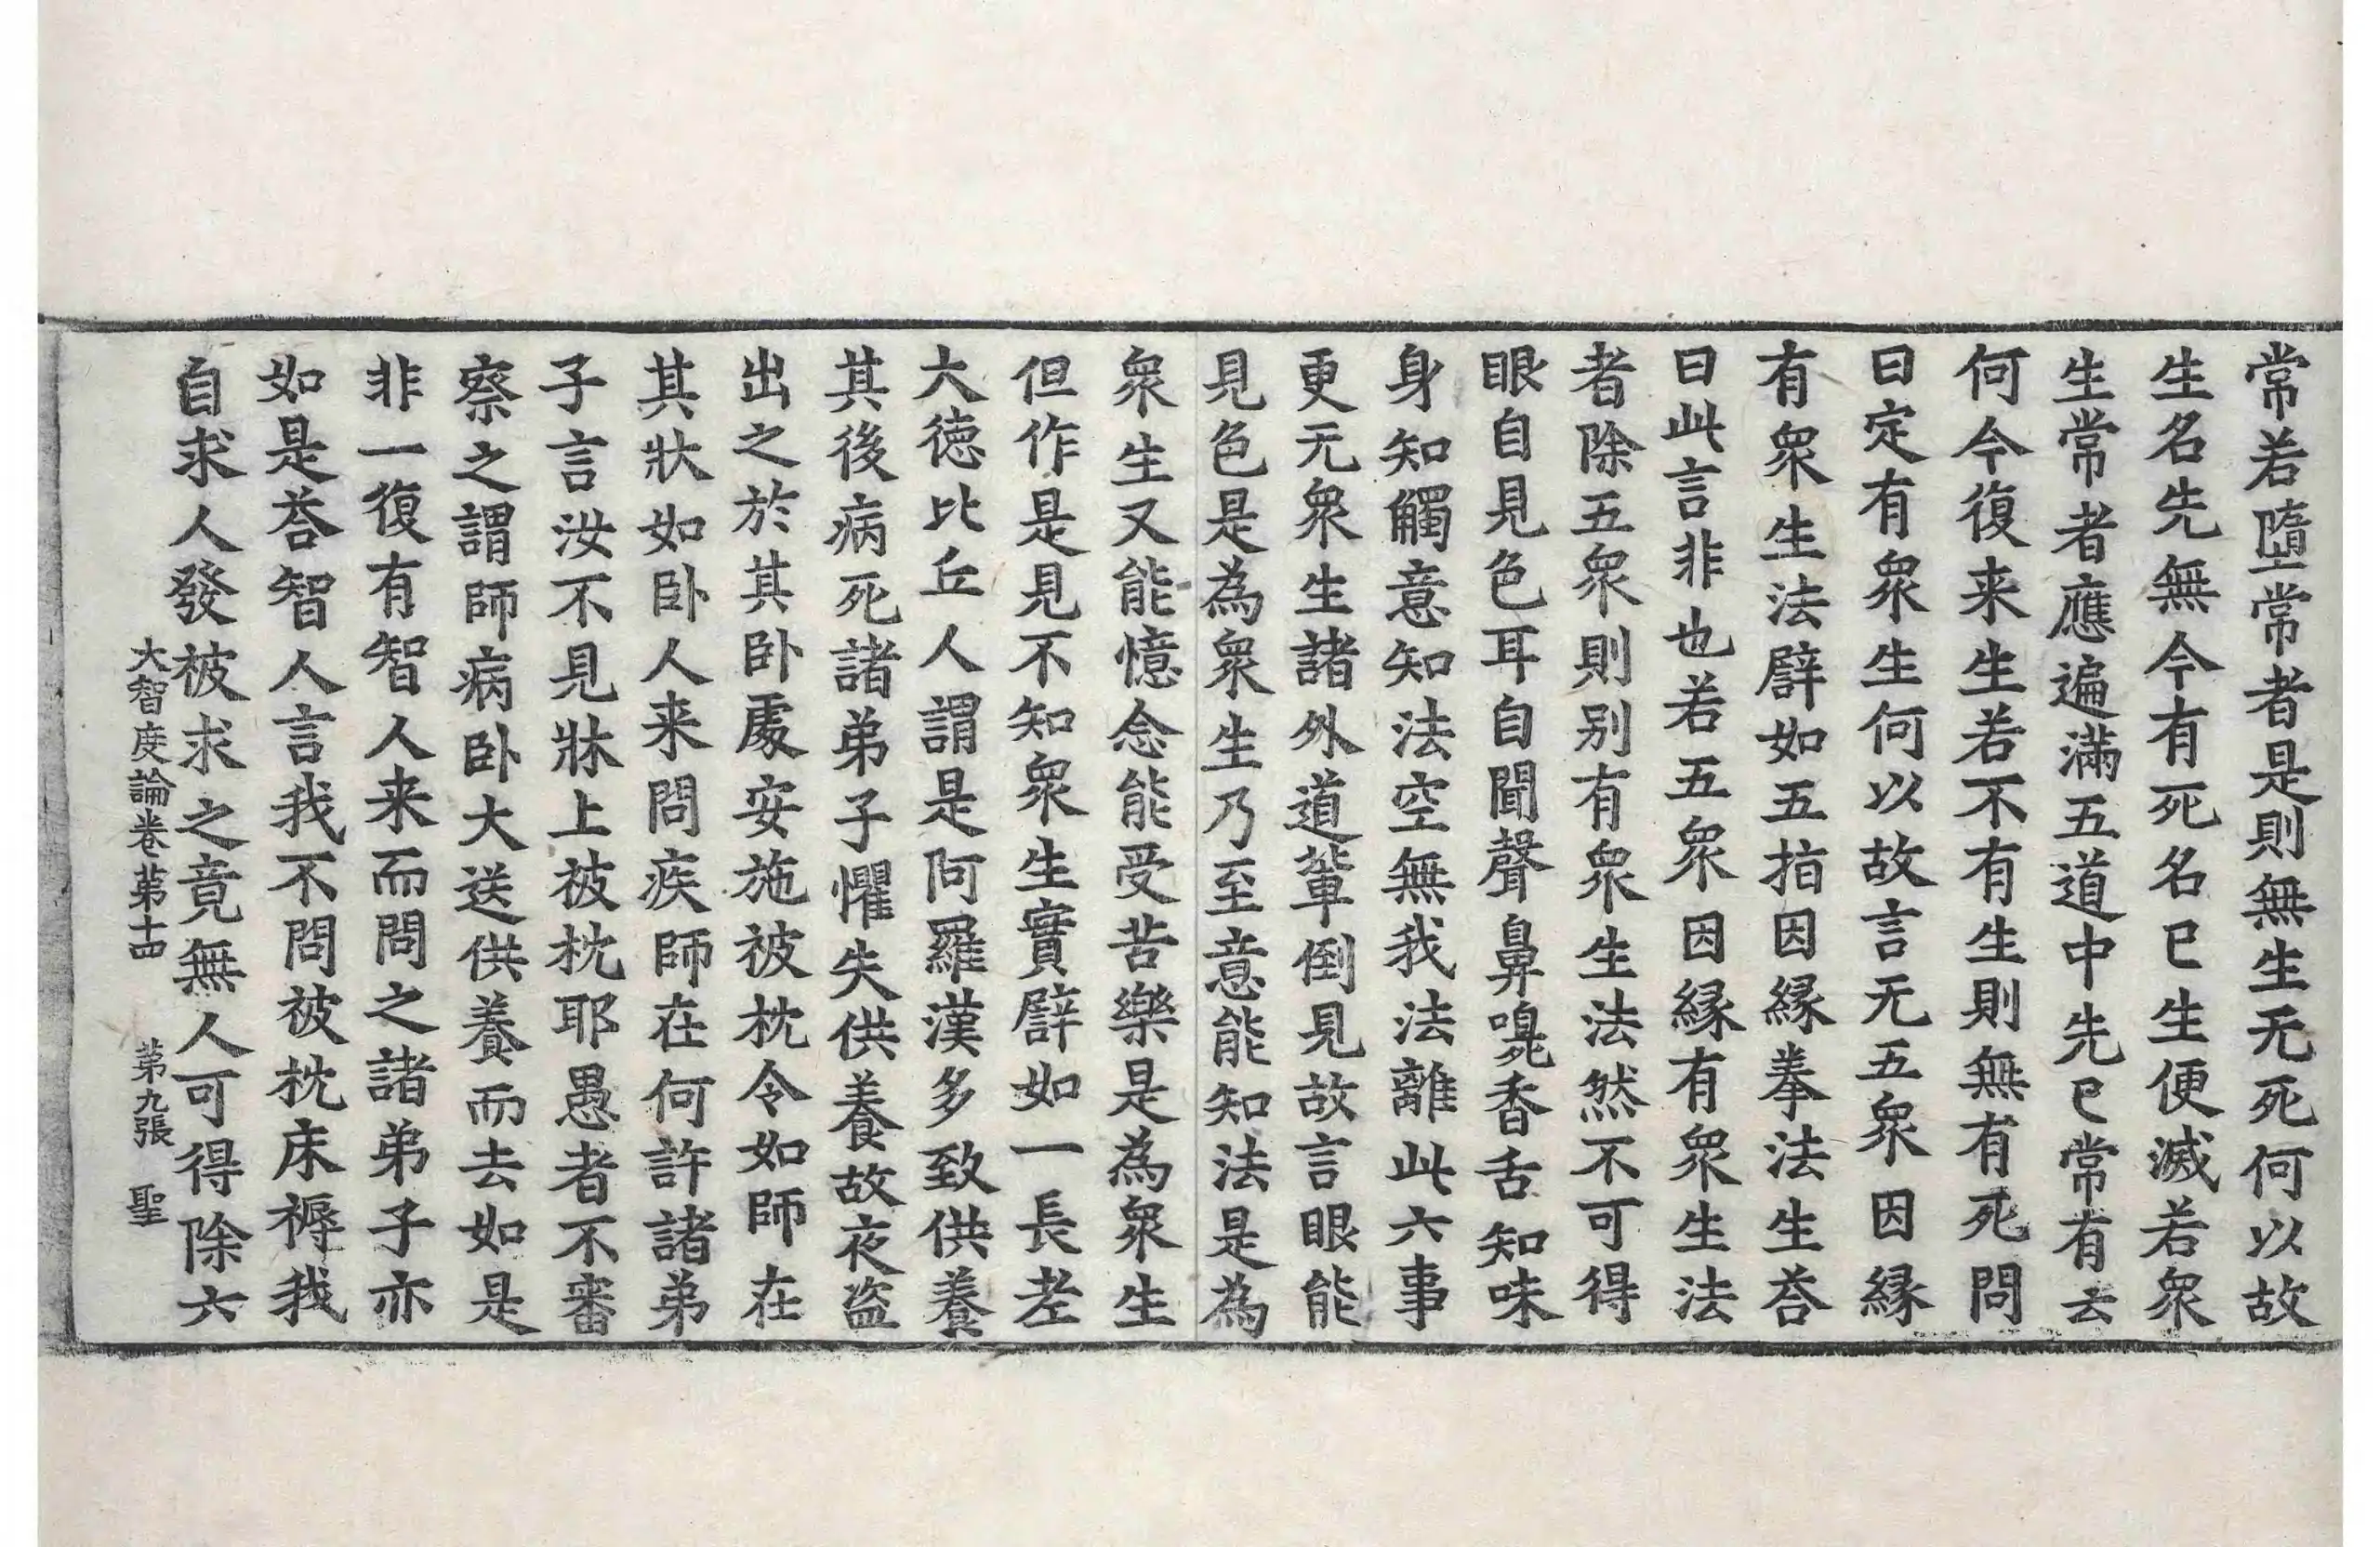 常若墮常者是則無生无死何以故
生名先無今有死名已生便滅若衆
生常者應遍滿五道中先已常有云
何今復来生若不有生則無有死問
曰定有衆生何以故言无五衆因縁
有衆生法譬如五指因縁拳法生荅
曰此言非也若五衆因縁有衆生法
者除五衆則别有衆生法然不可得
眼自見色耳自聞聲鼻嗅香舌知味
身知觸意知法空無我法離此六事
更无衆生諸外道輩倒見故言眼能
見色是為衆生乃至意能知法是為
衆生又能憶念能受苦樂是為衆生
但作是見不知衆生實譬如一長老
大德比丘人謂是阿羅漢多致供養
其後病死諸弟子懼失供養故夜盗
出之於其卧處安施被枕令如師在
其狀如卧人来問疾師在何許諸弟
子言汝不見牀上被枕耶愚者不審
察之謂師病卧大送供養而去如是
非一復有智人来而問之諸弟子亦
如是荅智人言我不問被枕床褥我
自求人發被求之竟無人可得除六
大智度論卷第十四　第九張　聖